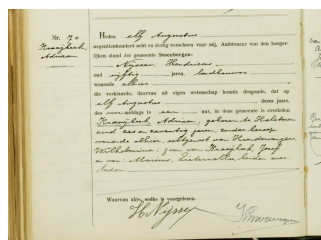 Nr. 70
Heden elf Augustus
negentienhonderd acht en dertig verscheen voor mij, Ambtenaar van den burger-
lijken stand der gemeente Steenbergen:
Nyssen Hendricus
oud vijftig jaren, landbouwer
wonende alhier
die verklaarde, daarvan uit eigen wetenschap kennis dragende, dat op
elf Augustus dezes jaars,
des middags te uur, in deze gemeente is overleden
Adriaan, geboren te Halsteren
oud zes en zeventig jaren, zonder beroep
wonende alhier, echtgenoot van
Wilhelmina; zoon van Josef
en van: Marina, beiden over-
leden
Waarvan akte, welke is voorgelezen.
H. Nyssen